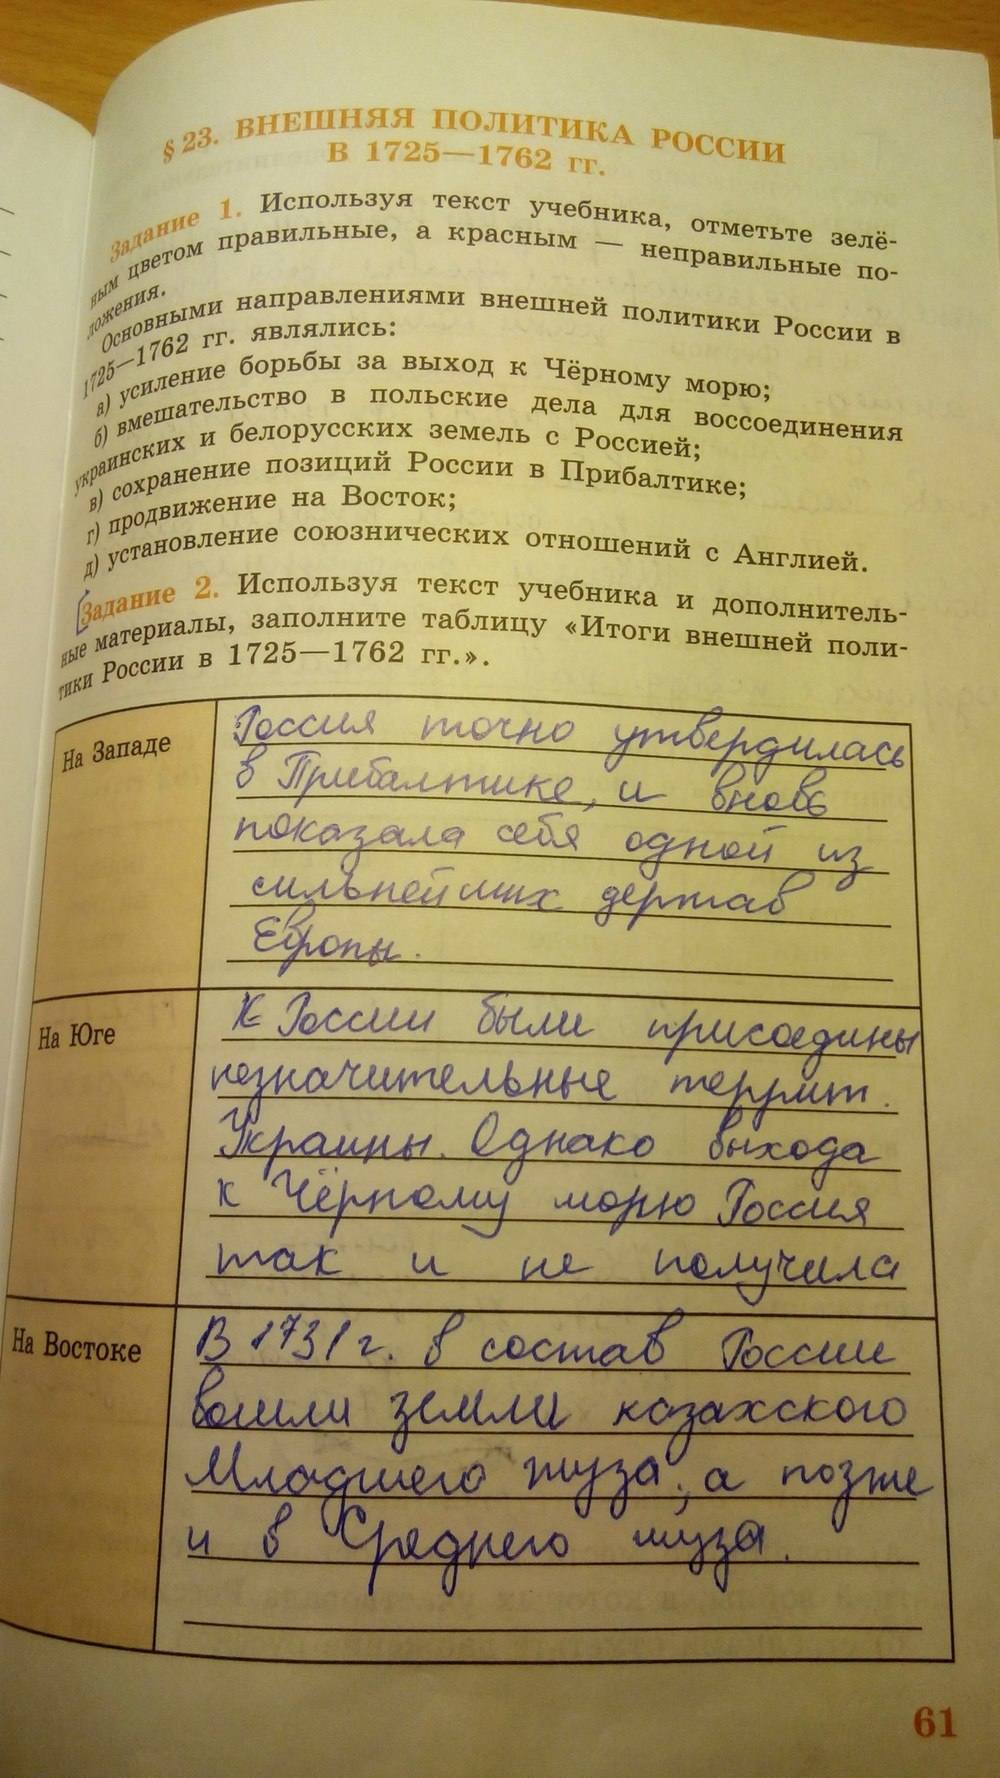 § 23. ВНЕШНЯЯ ПОЛИТИКА РОССИИ
В 1725—1762 гг.
Задание 1. Используя текст учебника, отметьте зелё-
ным цветом правильные, а красным — неправильные по-
ложения.
Основными направлениями внешней политики России в
1725—1762 гг. являлись:
а) усиление борьбы за выход к Чёрному морю;
б) вмешательство в польские дела для воссоединения
украинских и белорусских земель с Россией;
в) сохранение позиций России в Прибалтике;
г) продвижение на Восток;
д) установление союзнических отношений с Англией.
Задание 2. Используя текст учебника и дополнитель-
ные материалы, заполните таблицу «Итоги внешней поли-
тики России в 1725—1762 гг.».
На Западе
Россия точно утвердилась
в Прибалтике, и вновь
показала себя одной из
сильнейших держав
Европы.
На Юге
К России были присоедины
незначительные террит.
Украины. Однако выхода
к Чёрному морю Россия
так и не получила
На Востоке
В 1731 г. в состав России
вошли земли казахского
Младшего жуза, а позже
и в Среднего жуза.
61